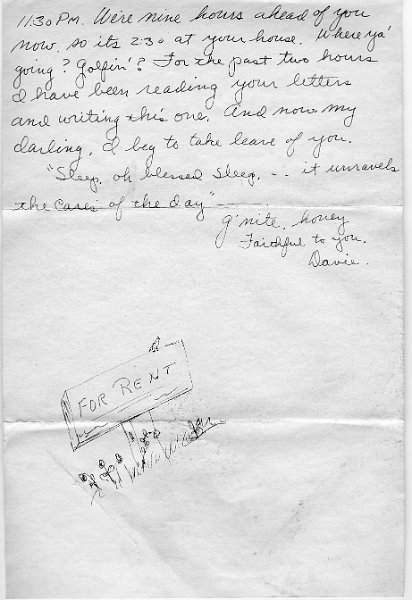 11:30 P.M. We're nine hours ahead of you
now, so its 2:30 at your house. Where ya'
going? Golfin'? For the past two hours
I have been reading your letters
and writing this one. And now my
darling, I beg to take leave of you.
"Sleep, oh blessed sleep, -- it unravels
the cares of the day" -----
g'nite, honey
Faithful to you,
Davie.
FOR RENT